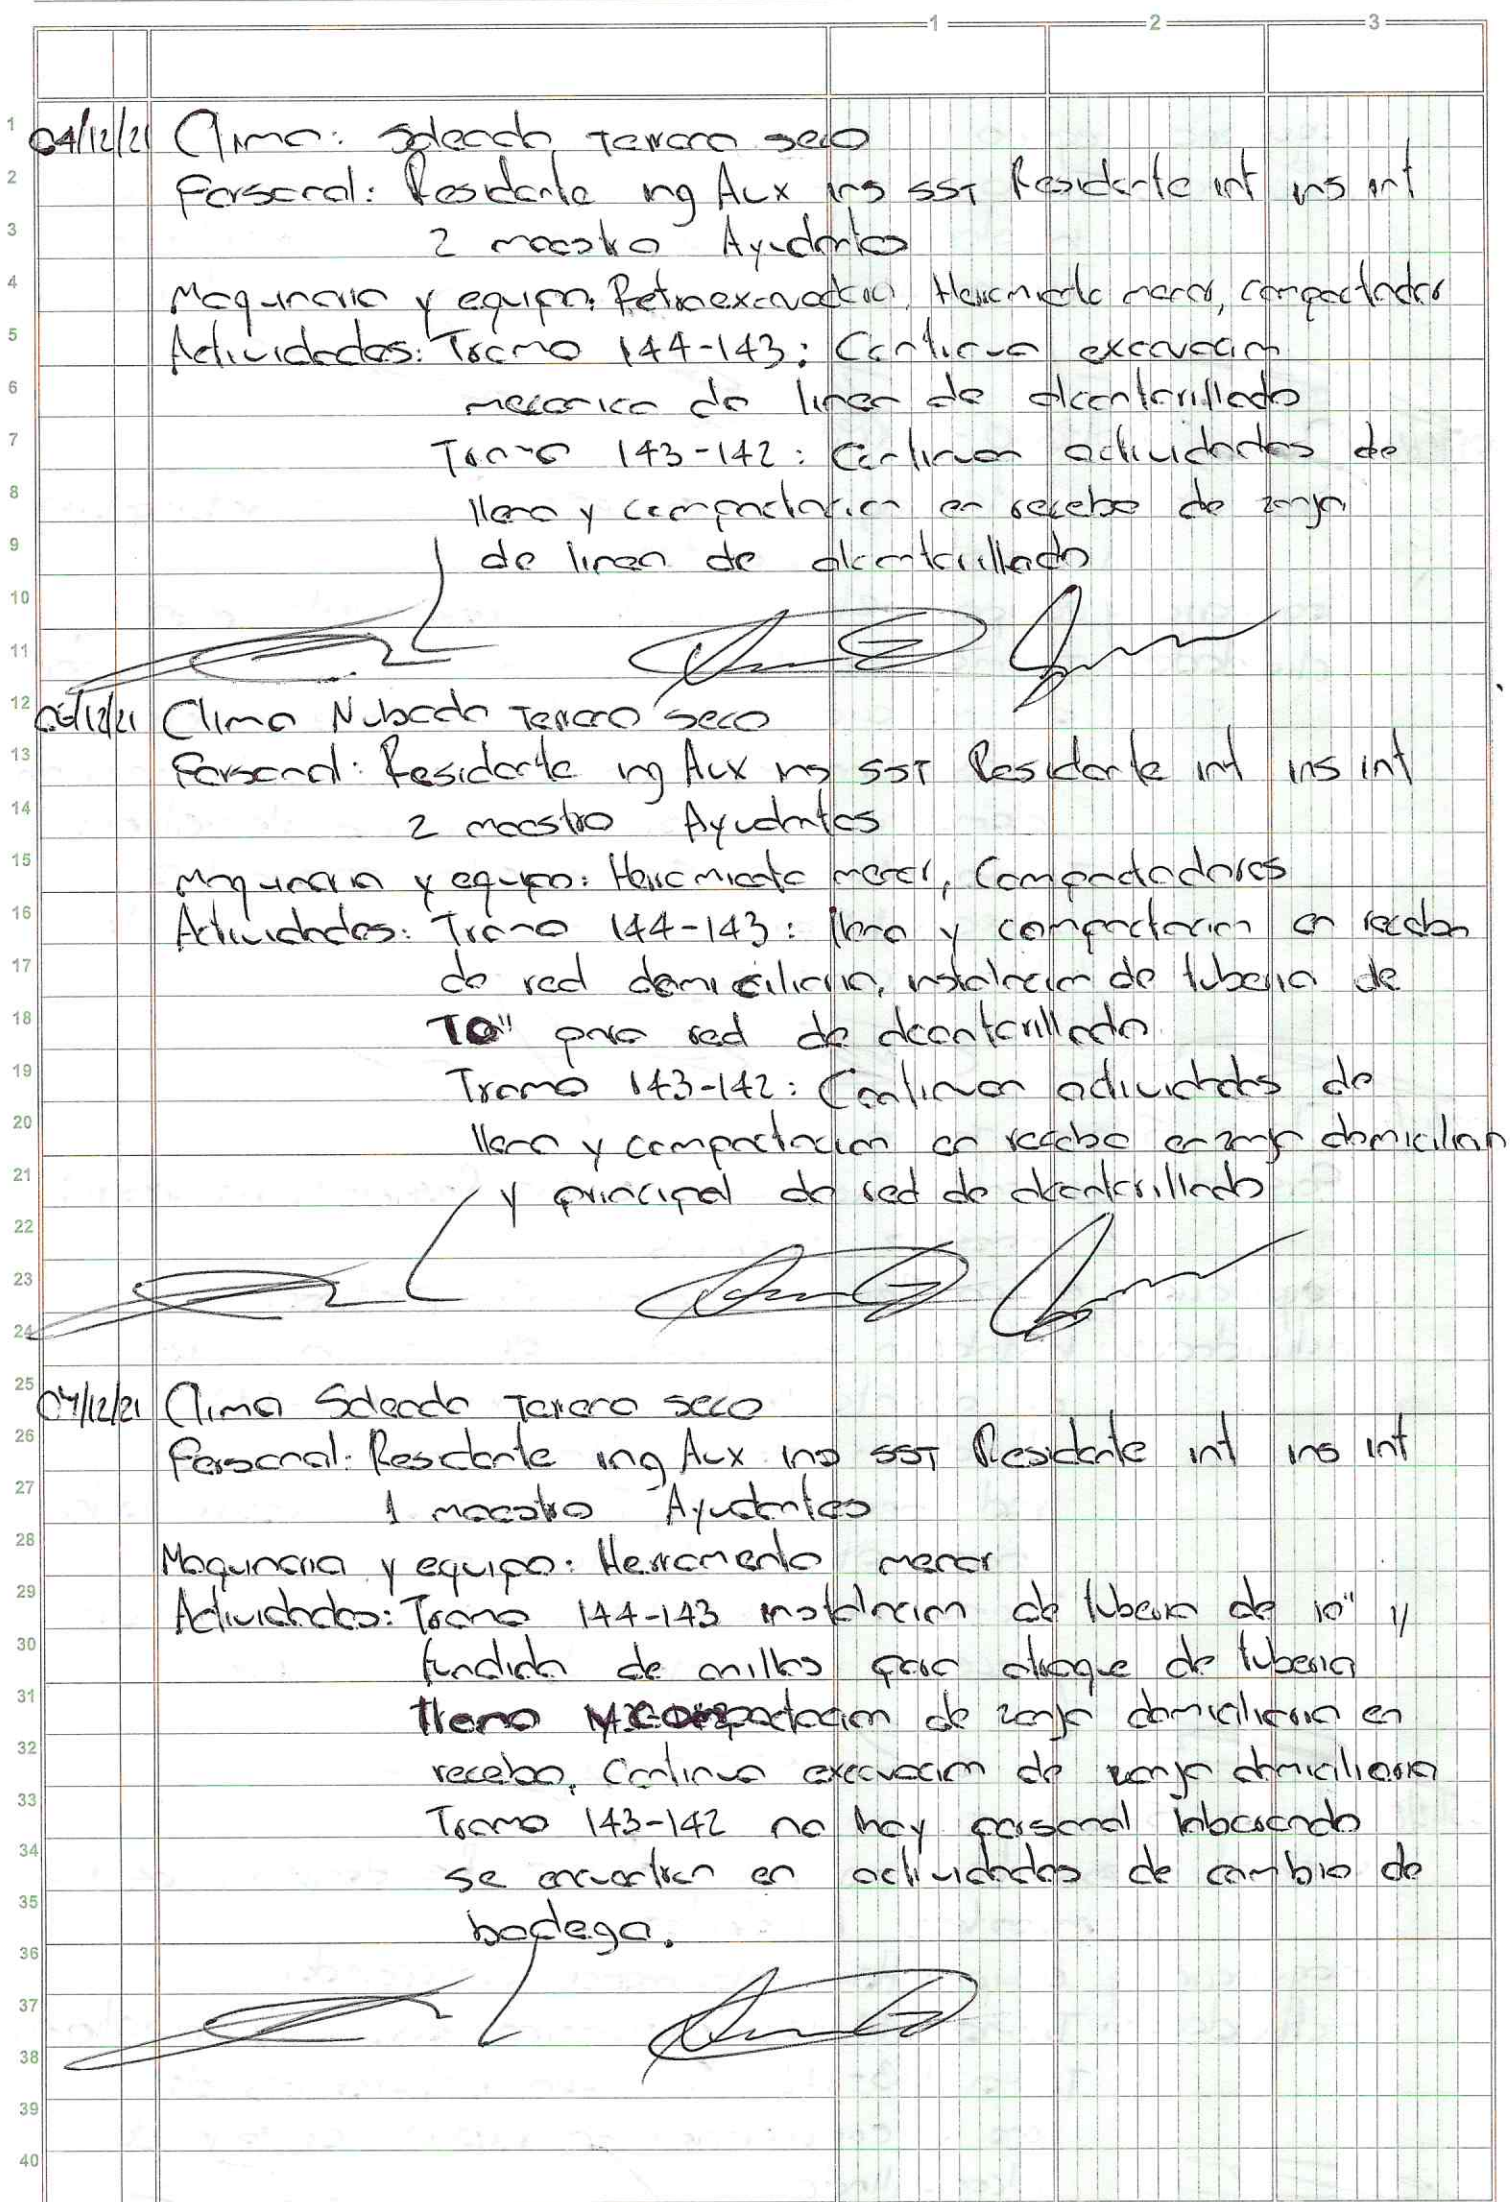 1 2 3
1 04/12/21 Clima: Soleado Terreno seco
2 Personal: Residente ing Aux ins SST Residente int ins int
3 2 maestro Ayudantes
4 Maquinaria y equipo: Retroexcavadora, Herramienta menor, compactador
5 Actividades: Tramo 144-143: Continua excavacion
6 mecanica de linea de alcantarillado
7 Tramo 143-142: Continuan actividades de
8 lleno y compactacion en recebo de zanja
9 de linea de alcantarillado
10
11
12 06/12/21 Clima Nubado Terreno seco
13 Personal: Residente ing Aux ins SST Residente int ins int
14 2 maestro Ayudantes
15 Maquinaria y equipo: Herramienta menor, Compactadores
16 Actividades: Tramo 144-143: lleno y compactacion en recebo
17 de red domiciliaria, instalacion de tuberia de
18 10" para red de alcantarillado
19 Tramo 143-142: Continuan actividades de
20 lleno y compactacion en recebo en zanja domiciliaria
21 y principal de red de alcantarillado
22
23
24
25 07/12/21 Clima Soleado Terreno seco
26 Personal: Residente ing Aux ins SST Residente int ins int
27 1 maestro Ayudantes
28 Maquinaria y equipo: Herramienta menor
29 Actividades: Tramo 144-143 instalacion de tuberia de 10" y
30 fundida de anillos para atraque de tuberia
31 lleno y compactacion de zanja domiciliaria en
32 recebo, Continua excavacion de zanja domiciliaria
33 Tramo 143-142 no hay personal laborando
34 se encuentran en actividades de cambio de
35 bodega.
36
37
38
39
40